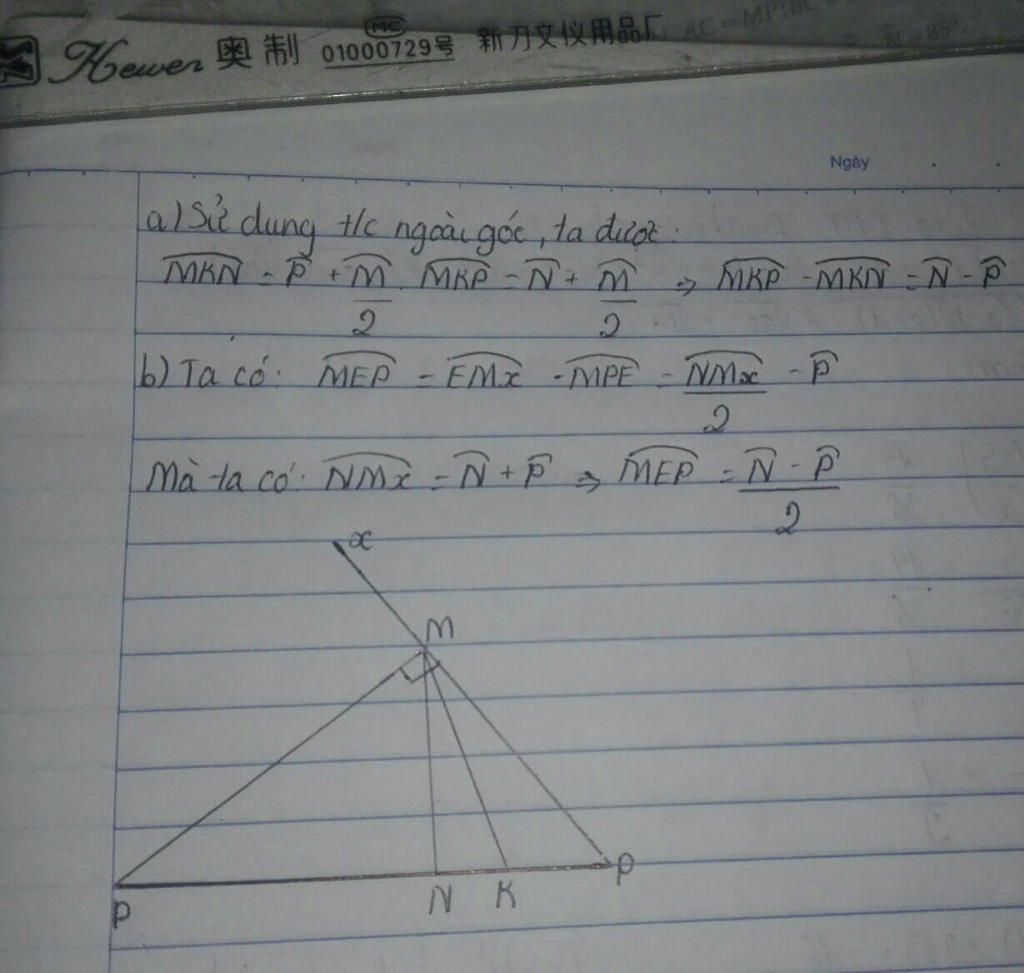 AC = MP; BC =
N̂ = 85°
Hewen 奥制 MC 01000729号 新刀文仪用品厂
Ngày
a) Sử dụng t/c ngoài góc, ta được:
M̂K̂N̂ = P̂ + M̂/2. M̂K̂P̂ = N̂ + M̂/2 => M̂K̂P̂ - M̂K̂N̂ = N̂ - P̂
b) Ta có: M̂ÊP̂ = ÊM̂x̂ - M̂P̂Ê = N̂M̂x̂/2 - P̂
Mà ta có: N̂M̂x̂ = N̂ + P̂ => M̂ÊP̂ = (N̂ - P̂)/2
x
M
P N K P